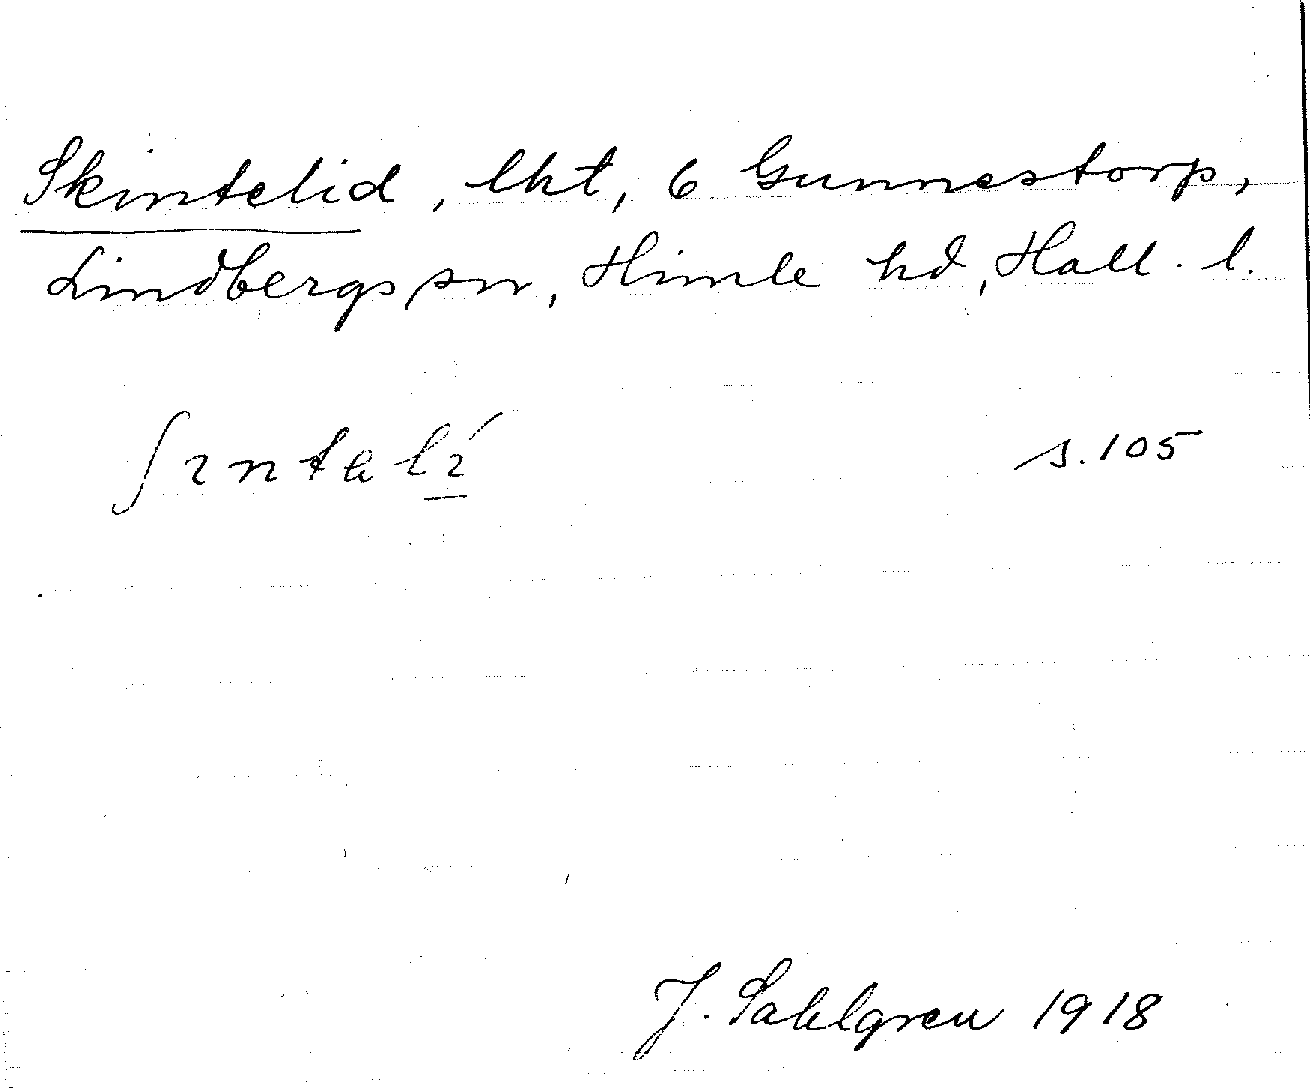 Skintelid, lht, 6 Gunnestorp,
Lindbergs sn, Himle hd, Hall. l.
ʃɩntəlɩ́ s. 105
J. Sahlgren 1918